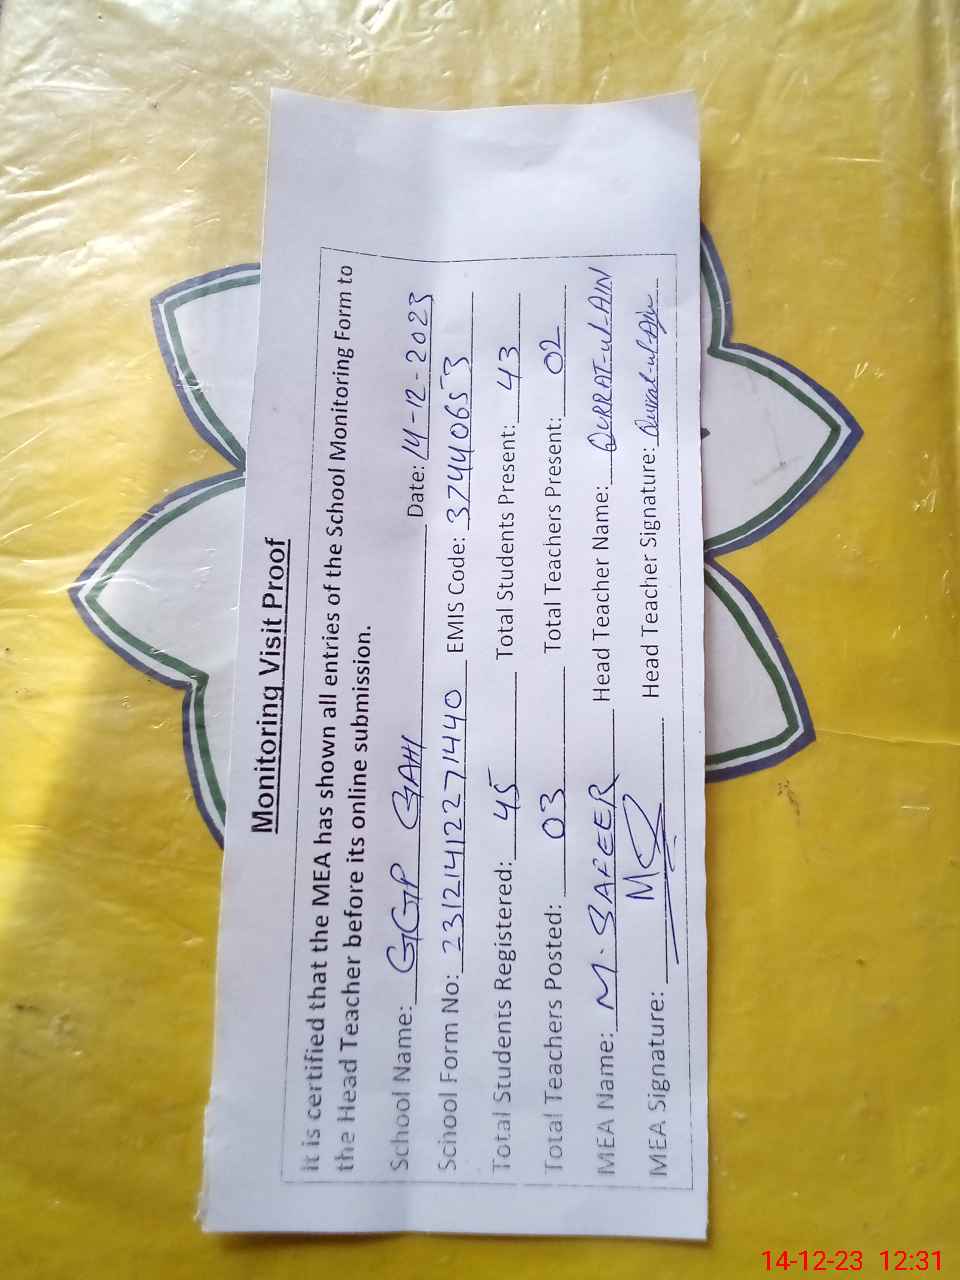 Monitoring Visit Proof
It is certified that the MEA has shown all entries of the School Monitoring Form to
the Head Teacher before its online submission.
School Name: GGP GAHI Date: 14-12-2023
School Form No: 23121412271440 EMIS Code: 37440653
Total Students Registered: 45 Total Students Present: 43
Total Teachers Posted: 03 Total Teachers Present: 02
MEA Name: M. SAFEER Head Teacher Name: QURRAT-ul-AIN
MEA Signature: Head Teacher Signature: Qurat-ul-Ain
14-12-23 12:31